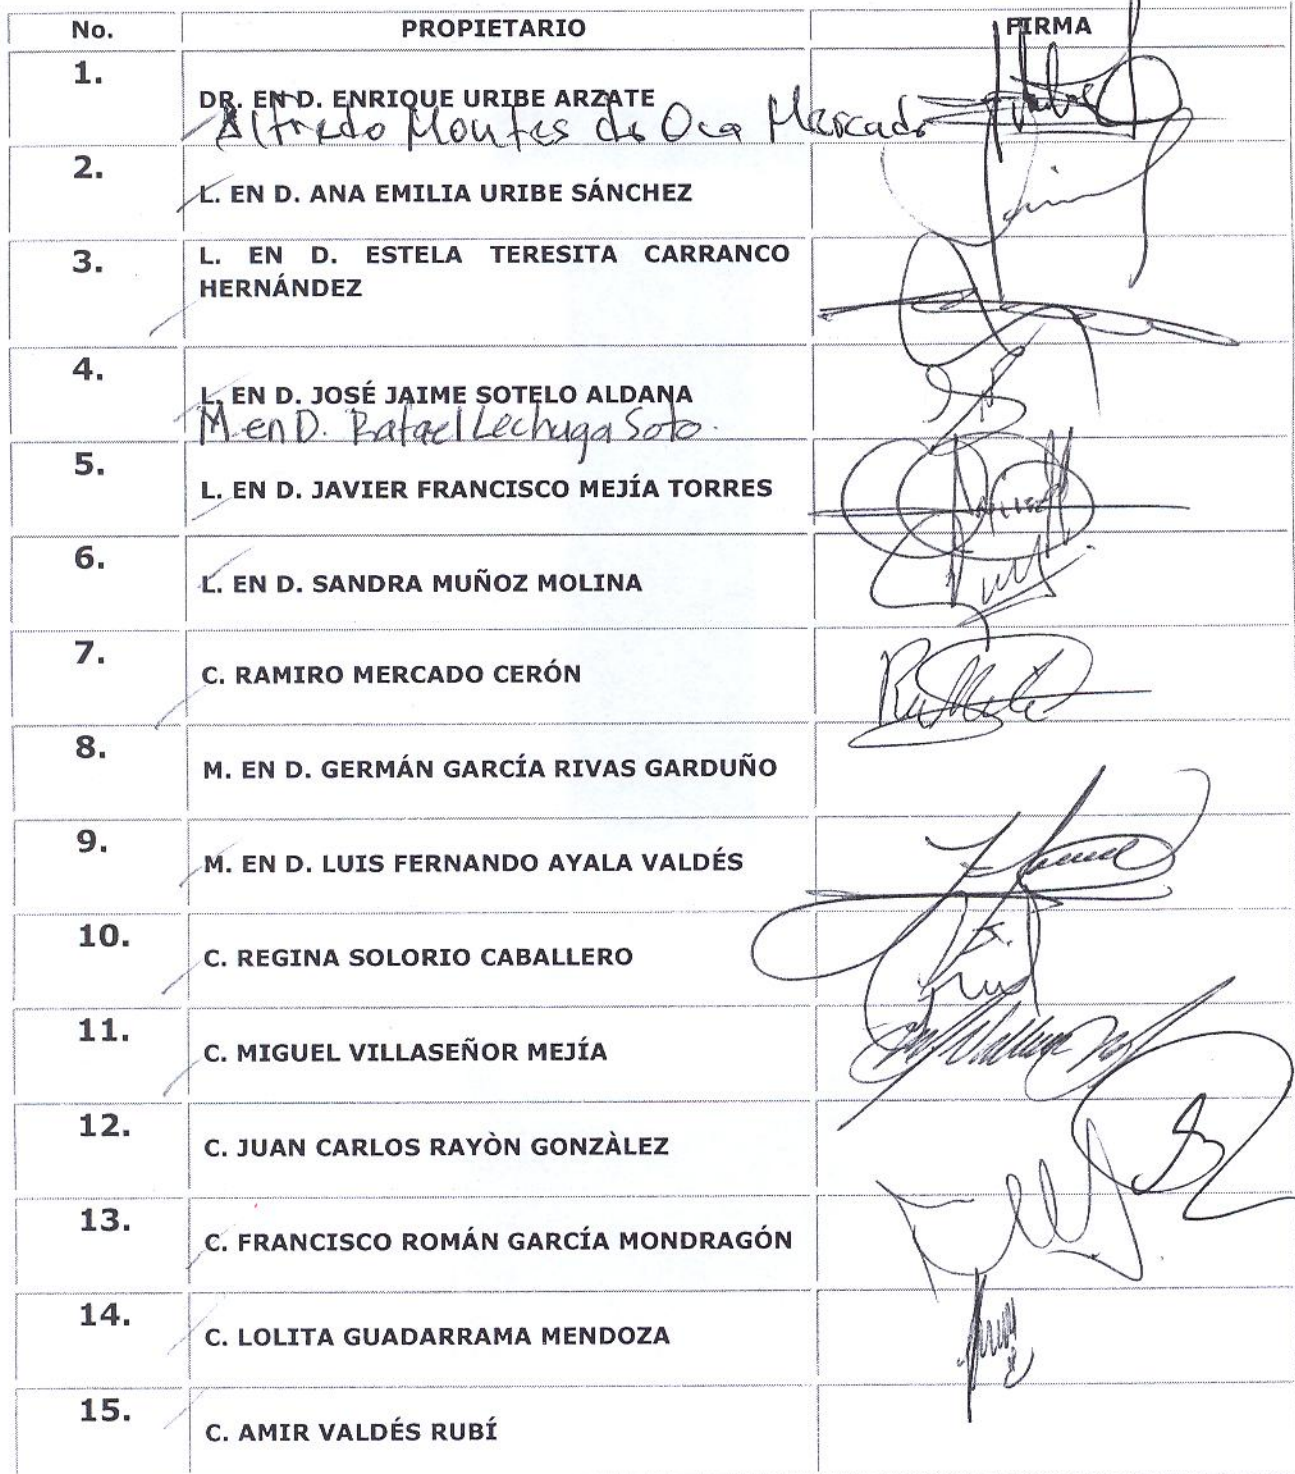 No. PROPIETARIO FIRMA
1.
DR. EN D. ENRIQUE URIBE ARZATE
Alfredo Montes de Oca Mercado
2.
L. EN D. ANA EMILIA URIBE SÁNCHEZ
3.
L. EN D. ESTELA TERESITA CARRANCO
HERNÁNDEZ
4.
L. EN D. JOSÉ JAIME SOTELO ALDANA
M. en D. Rafael Lechuga Soto.
5.
L. EN D. JAVIER FRANCISCO MEJÍA TORRES
6.
L. EN D. SANDRA MUÑOZ MOLINA
7.
C. RAMIRO MERCADO CERÓN
8.
M. EN D. GERMÁN GARCÍA RIVAS GARDUÑO
9.
M. EN D. LUIS FERNANDO AYALA VALDÉS
10.
C. REGINA SOLORIO CABALLERO
11.
C. MIGUEL VILLASEÑOR MEJÍA
12.
C. JUAN CARLOS RAYÒN GONZÀLEZ
13.
C. FRANCISCO ROMÁN GARCÍA MONDRAGÓN
14.
C. LOLITA GUADARRAMA MENDOZA
15.
C. AMIR VALDÉS RUBÍ